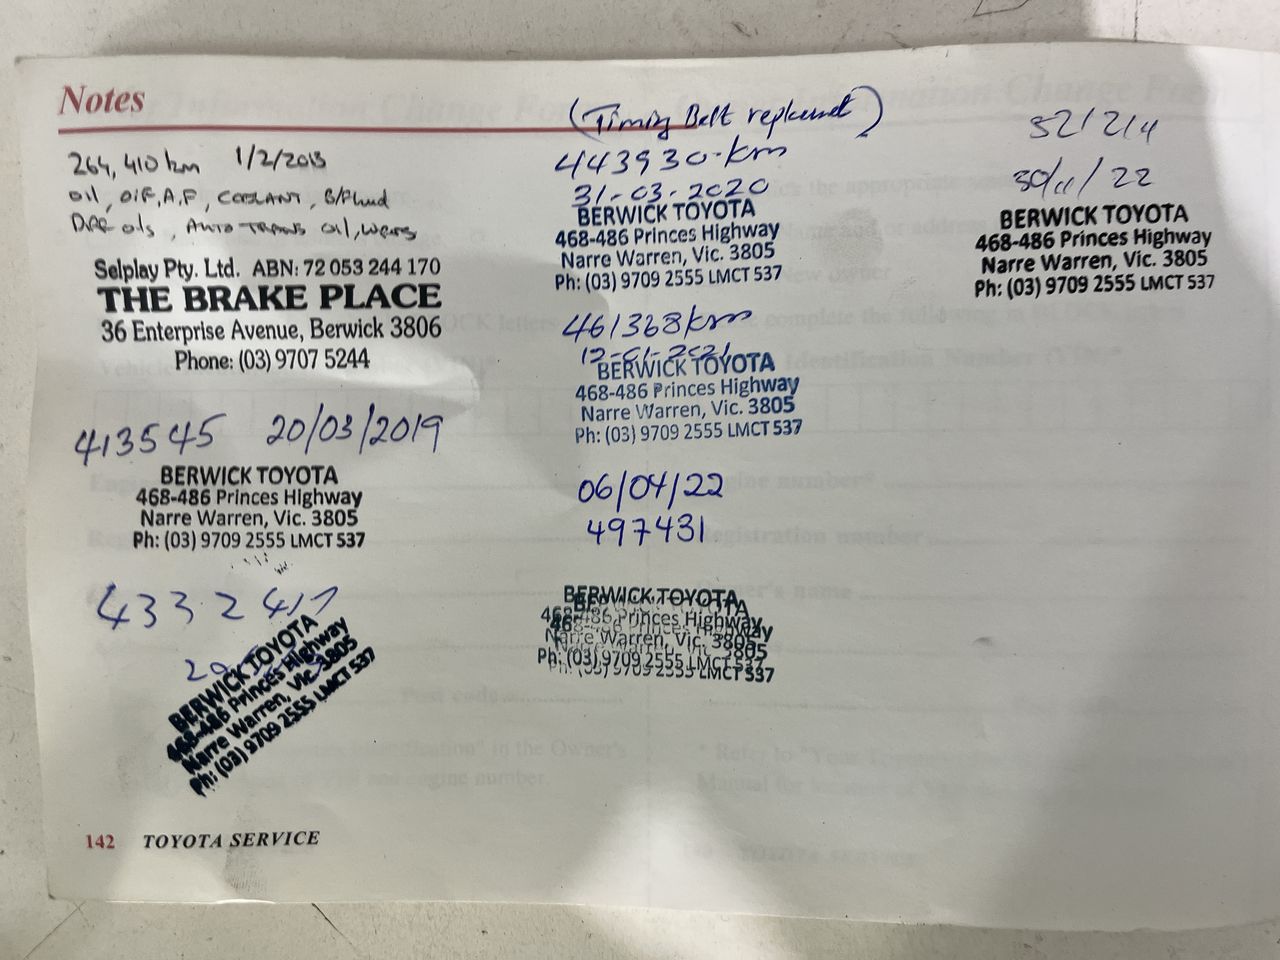 Notes
264,410 km 1/2/2013
oil, O/F, A,F, COOLANT, B/Fluid
Diff oils, AUTO TRANS oil,
Selplay Pty. Ltd. ABN: 72 053 244 170
THE BRAKE PLACE
36 Enterprise Avenue, Berwick 3806
Phone: (03) 9707 5244
413545 20/03/2019
BERWICK TOYOTA
468-486 Princes Highway
Narre Warren, Vic. 3805
Ph: (03) 9709 2555 LMCT 537
BERWICK TOYOTA
468-486 Princes Highway
Narre Warren, Vic. 3805
Ph: (03) 9709 2555 LMCT 537
142 TOYOTA SERVICE
(Timing Belt replacement)
443930-km
31-03-2020
BERWICK TOYOTA
468-486 Princes Highway
Narre Warren, Vic. 3805
Ph: (03) 9709 2555 LMCT 537
461368km
12-01-2021
BERWICK TOYOTA
468-486 Princes Highway
Narre Warren, Vic. 3805
Ph: (03) 9709 2555 LMCT 537
06/04/22
497431
BERWICK TOYOTA
468-486 Princes Highway
Narre Warren, Vic. 3805
Ph: (03) 9709 2555 LMCT 537
30/11/22
BERWICK TOYOTA
468-486 Princes Highway
Narre Warren, Vic. 3805
Ph: (03) 9709 2555 LMCT 537